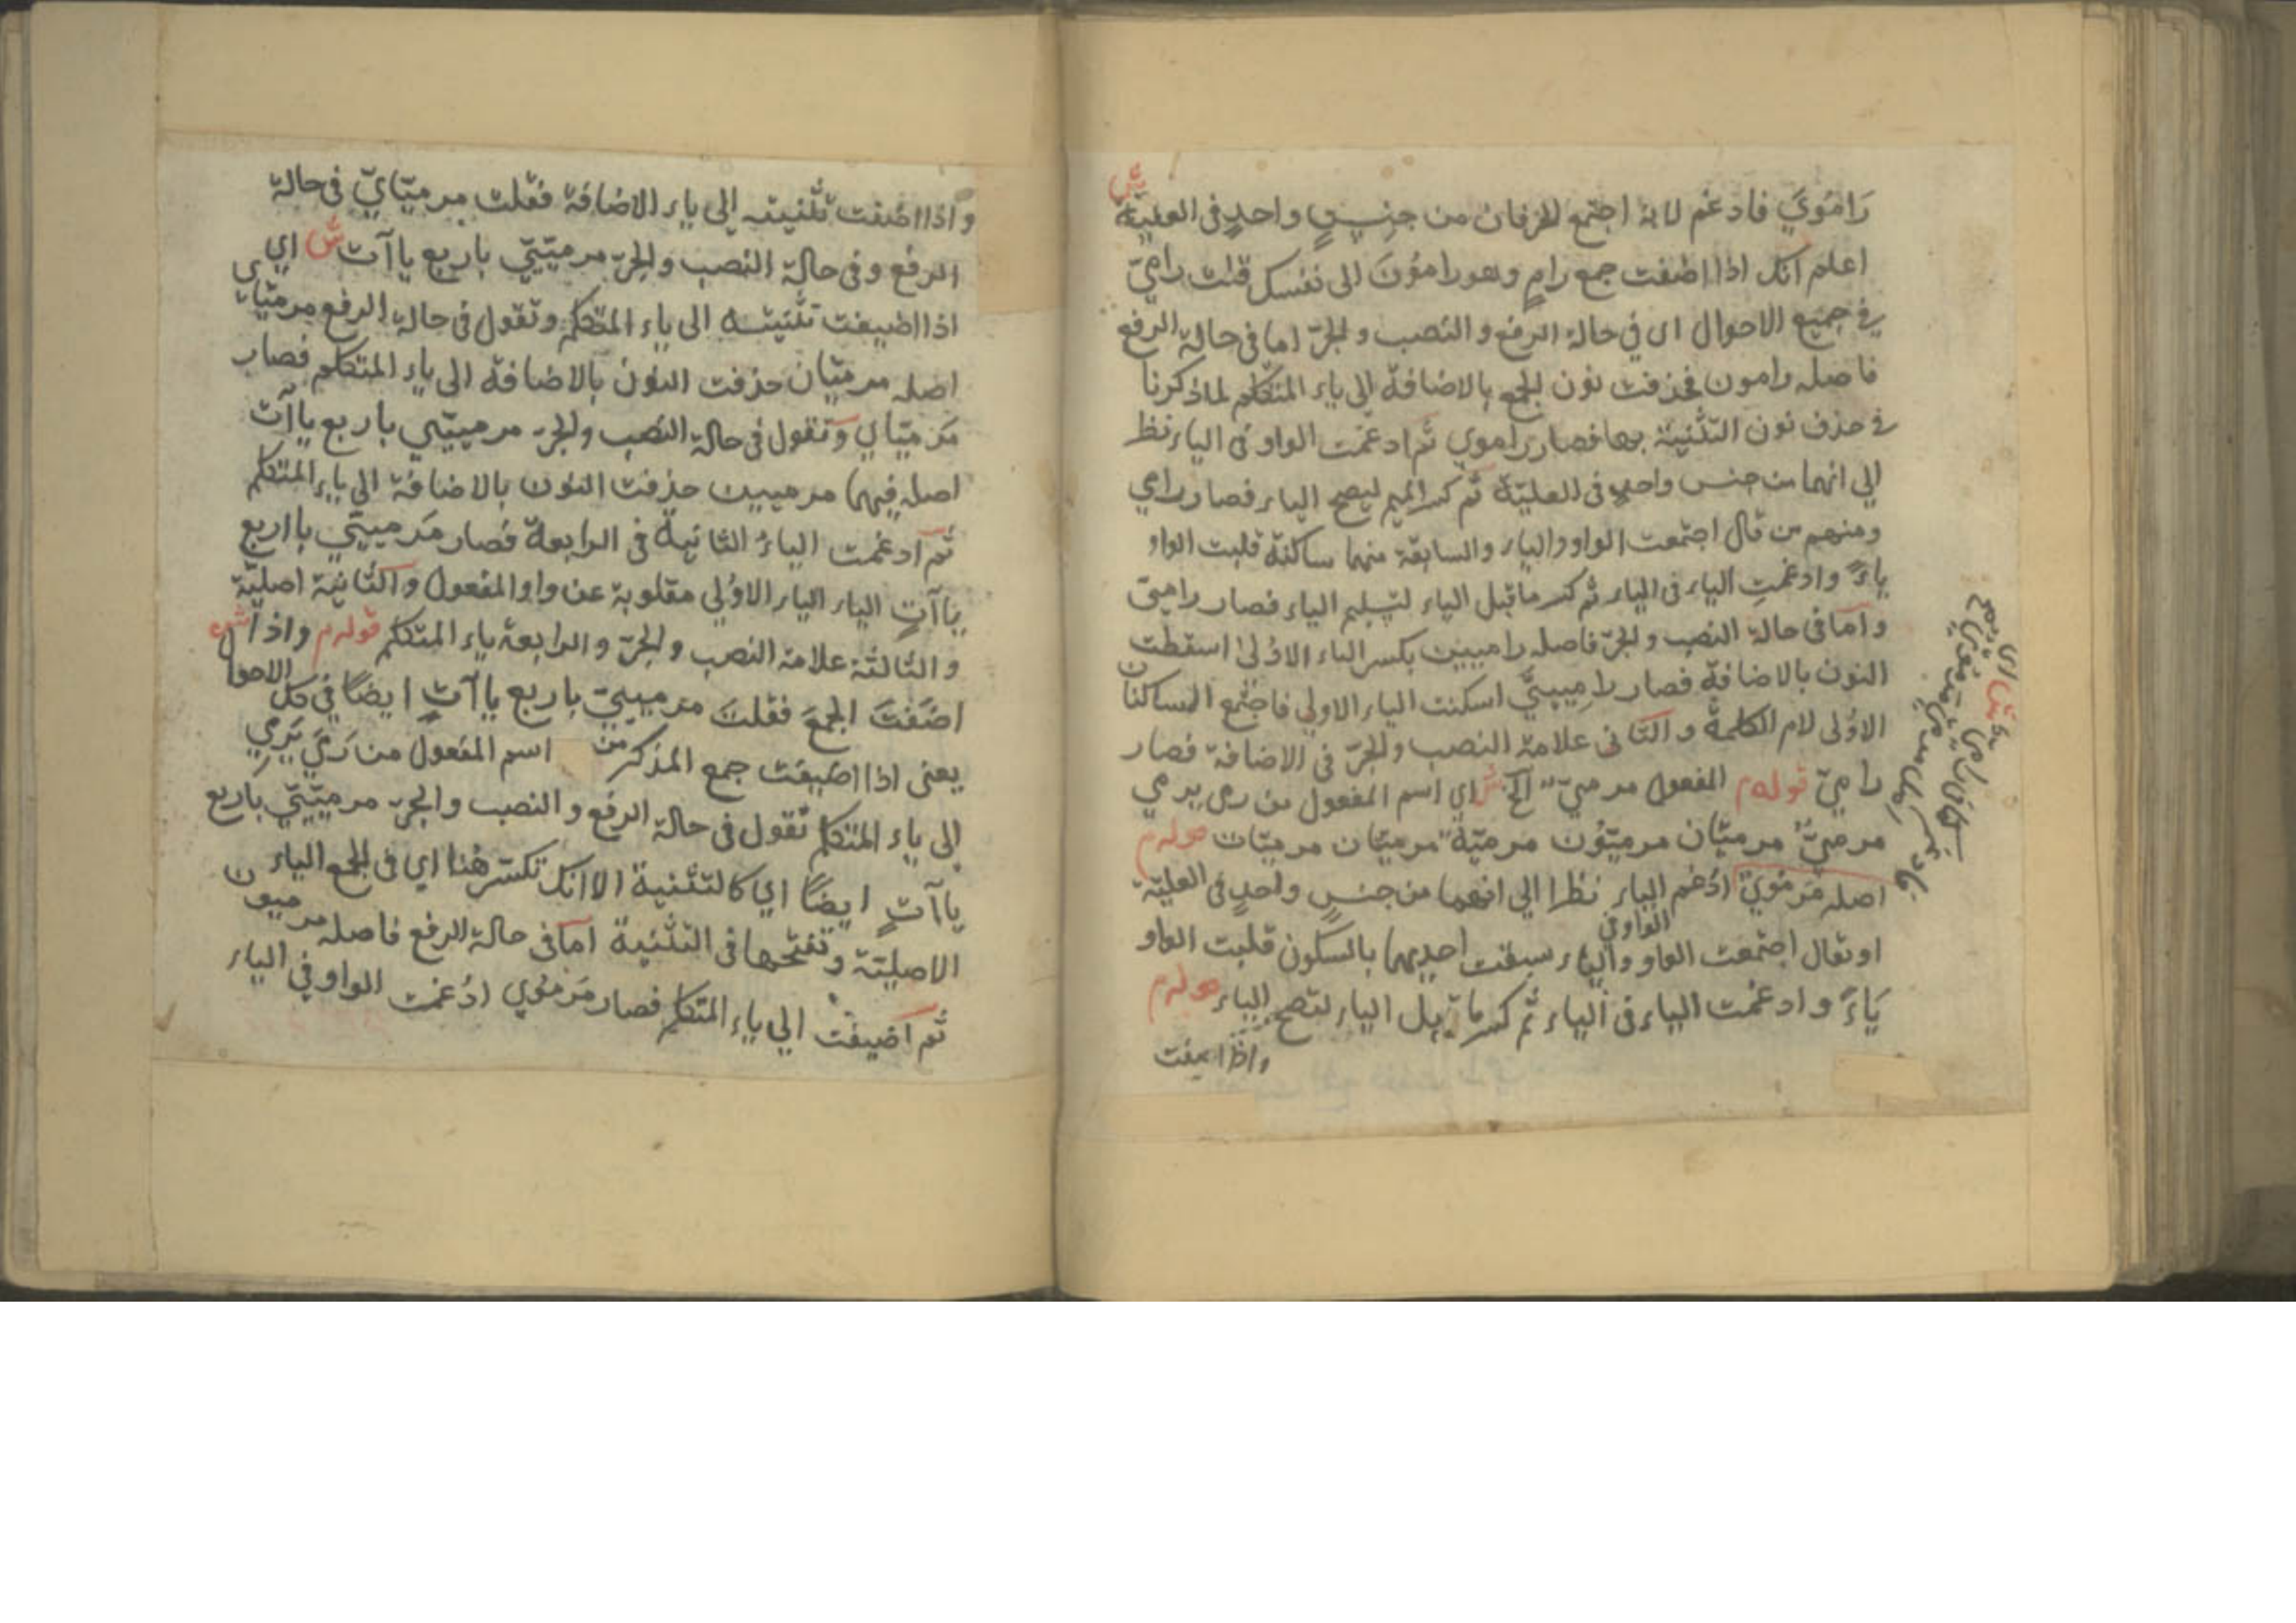 رَامُويَ فادغم لانه اجتمع الحرفان من جنسٍ واحدٍ فى العليّة ش
اعلم انك اذا اضفت جمع رامٍ وهو رامُونَ الى نفسك قلت راميّ
فى جميع الاحوال اى في حالة الرفع والنصب والجرّ اما فى حالة الرفع
فاصله رامون فحذفت نون الجمع بالاضافة الى ياء المتكلم لما ذكرنا
فى حذف نون التثنية بها فصار راموي ثم ادغمت الواو فى الياء نظرا
الي انهما من جنس واحد فى العليّة ثم كسر الميم ليصح الياء فصار رامي
ومنهم من قال اجتمعت الواو والياء والسابقة منهما ساكنة قلبت الواو
ياءً وادغمتِ الياء فى الياء ثم كسر ما قبل الياء لتسليم الياء فصار راميّ
واما فى حالة النصب والجرّ فاصله راميين بكسر الياء الاولىٰ اسقطت
النون بالاضافة فصار رامِيييّ اسكنت الياء الاولي فاجتمع الساكنان
الاوُلى لام الكلمة والثانى علامة النصب والجرّ فى الاضافة فصار
راميّ قوله م المفعول مرميّ الخ ش اي اسم المفعول من رمى يرمي
مرميٌّ مرميّان مرميّون مرميّة مرميّتان مرميّات قوله م
اصله مَرمُويٌ ادُغم الياء نظرا الي انهما من جنسٍ واحدٍ فى العليّة
الواو فى
او تقال اجتمعت الواو والياء سبقت احديهما بالسكون قلبت الواو
يَاءً وادغمت الياء فى الياء ثم كسر ما قبل الياء لتصح الياء قوله م
واذا اضفت
واذا اضفت تثنيته الى ياء الاضافة فقلت مرميّايّ فى حالة
الرفع وفى حالة النصب والجرّ مرميّييّ باربع ياآت ش اي
اذا اضيفت تثنيته الى ياء المتكلم وتقول فى حالة الرفع مرميّاي
اصله مرميّان حذفت النون بالاضافة الى ياء المتكلم فصار
مَرميّاي وتقول فى حالة النصب والجر مرمييّي باربع ياآت
اصله فيهما مرميين حذفت النون بالاضافة الى ياء المتكلم
ثم ادغمت الياءُ الثانية فى الرابعة فصار مَرمييّي باربع
ياآتٍ الياء الياء الاوُلي مقلوبة عن واو المفعول والثانية اصليّة
والثالثة علامة النصب والجرّ والرابعة ياء المتكلم قوله م واذا
اضَفتَ الجمعَ فقلتَ مرمييّ باربع ياآتٍ ايضًا فى كل الاحوا ل ش
يعنى اذا اضيفت جمع المذكر من اسم المفعول من رَميَ يَرمي
الى ياء المتكلم تقول فى حالة الرفع والنصب والجر مرميّييّ باربع
ياآتٍ ايضًا اي كالتثنية الا انك تكسّر هُنا اي فى الجمع الياء
الاصليّة وتفتحها فى التثنية اما فى حالة الرفع فاصله مرميون
ثم اضيفت الي ياء المتكلم فصار مَرمُوي ادُغمت الواو في الياء